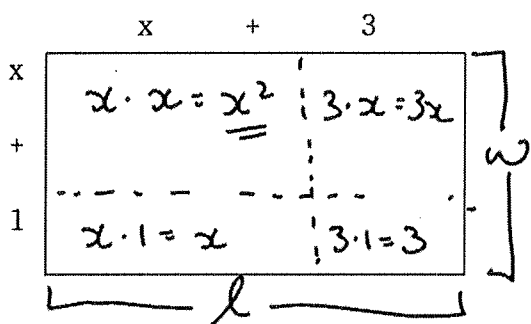 x + 3
x
x · x = x² 3 · x = 3x
+
w
1
x · 1 = x 3 · 1 = 3
l